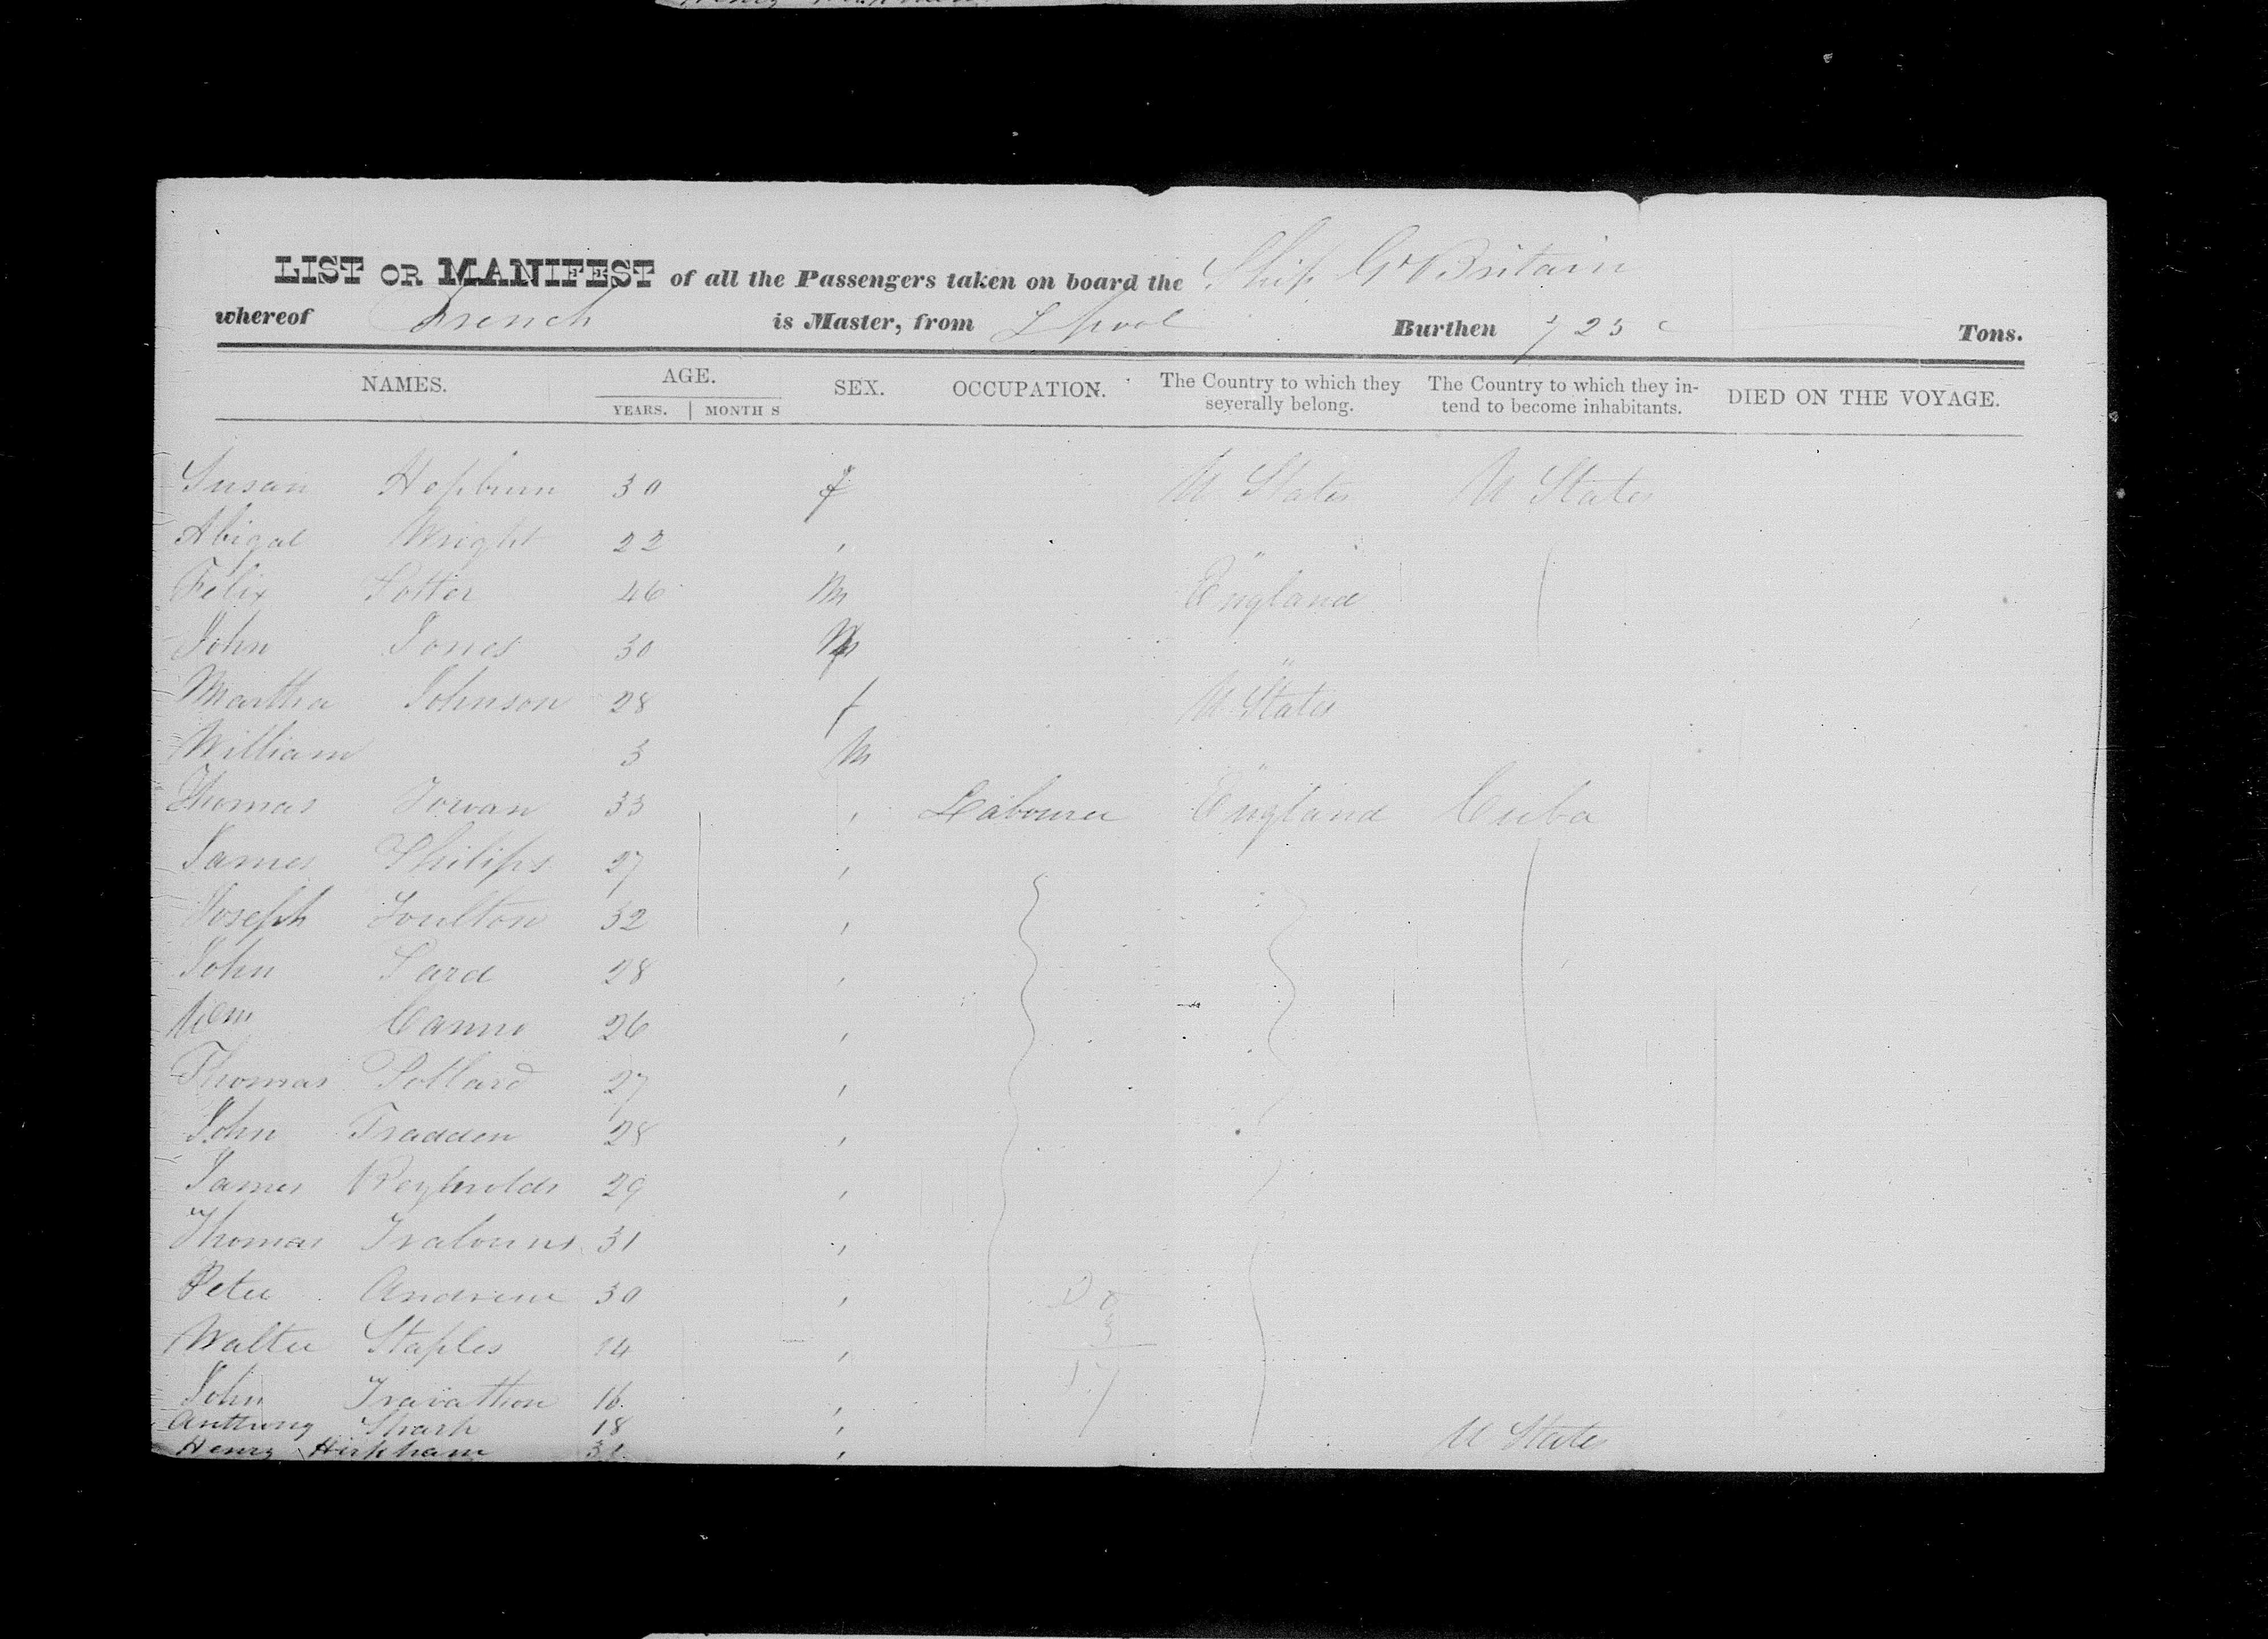 LIST OR MANIFEST of all the Passengers taken on board the Ship Gt Britain
whereof French is Master, from Lpool Burthen 723 Tons.
NAMES. AGE. SEX. OCCUPATION. The Country to which they severally belong. The Country to which they intend to become inhabitants. DIED ON THE VOYAGE.
YEARS. MONTHS
Susan Hepburn 30 f U States U States
Abigal Wright 22 , "
Felix Potter 46 M England
John Jones 30 M "
Martha Johnson 28 f U States
William 3 M "
Thomas 33 , Labourer England Cuba
James Philips 27 ,
Joseph 32 ,
John 28 ,
Wm 26 ,
Thomas Pollard 27 ,
John 28 ,
James Reynolds 29 ,
Thomas 31 ,
Peter Andrew 30 , Do
Walter Staples 14 ,
17
John 16 ,
Anthony 18 ,
Henry 31 , U States